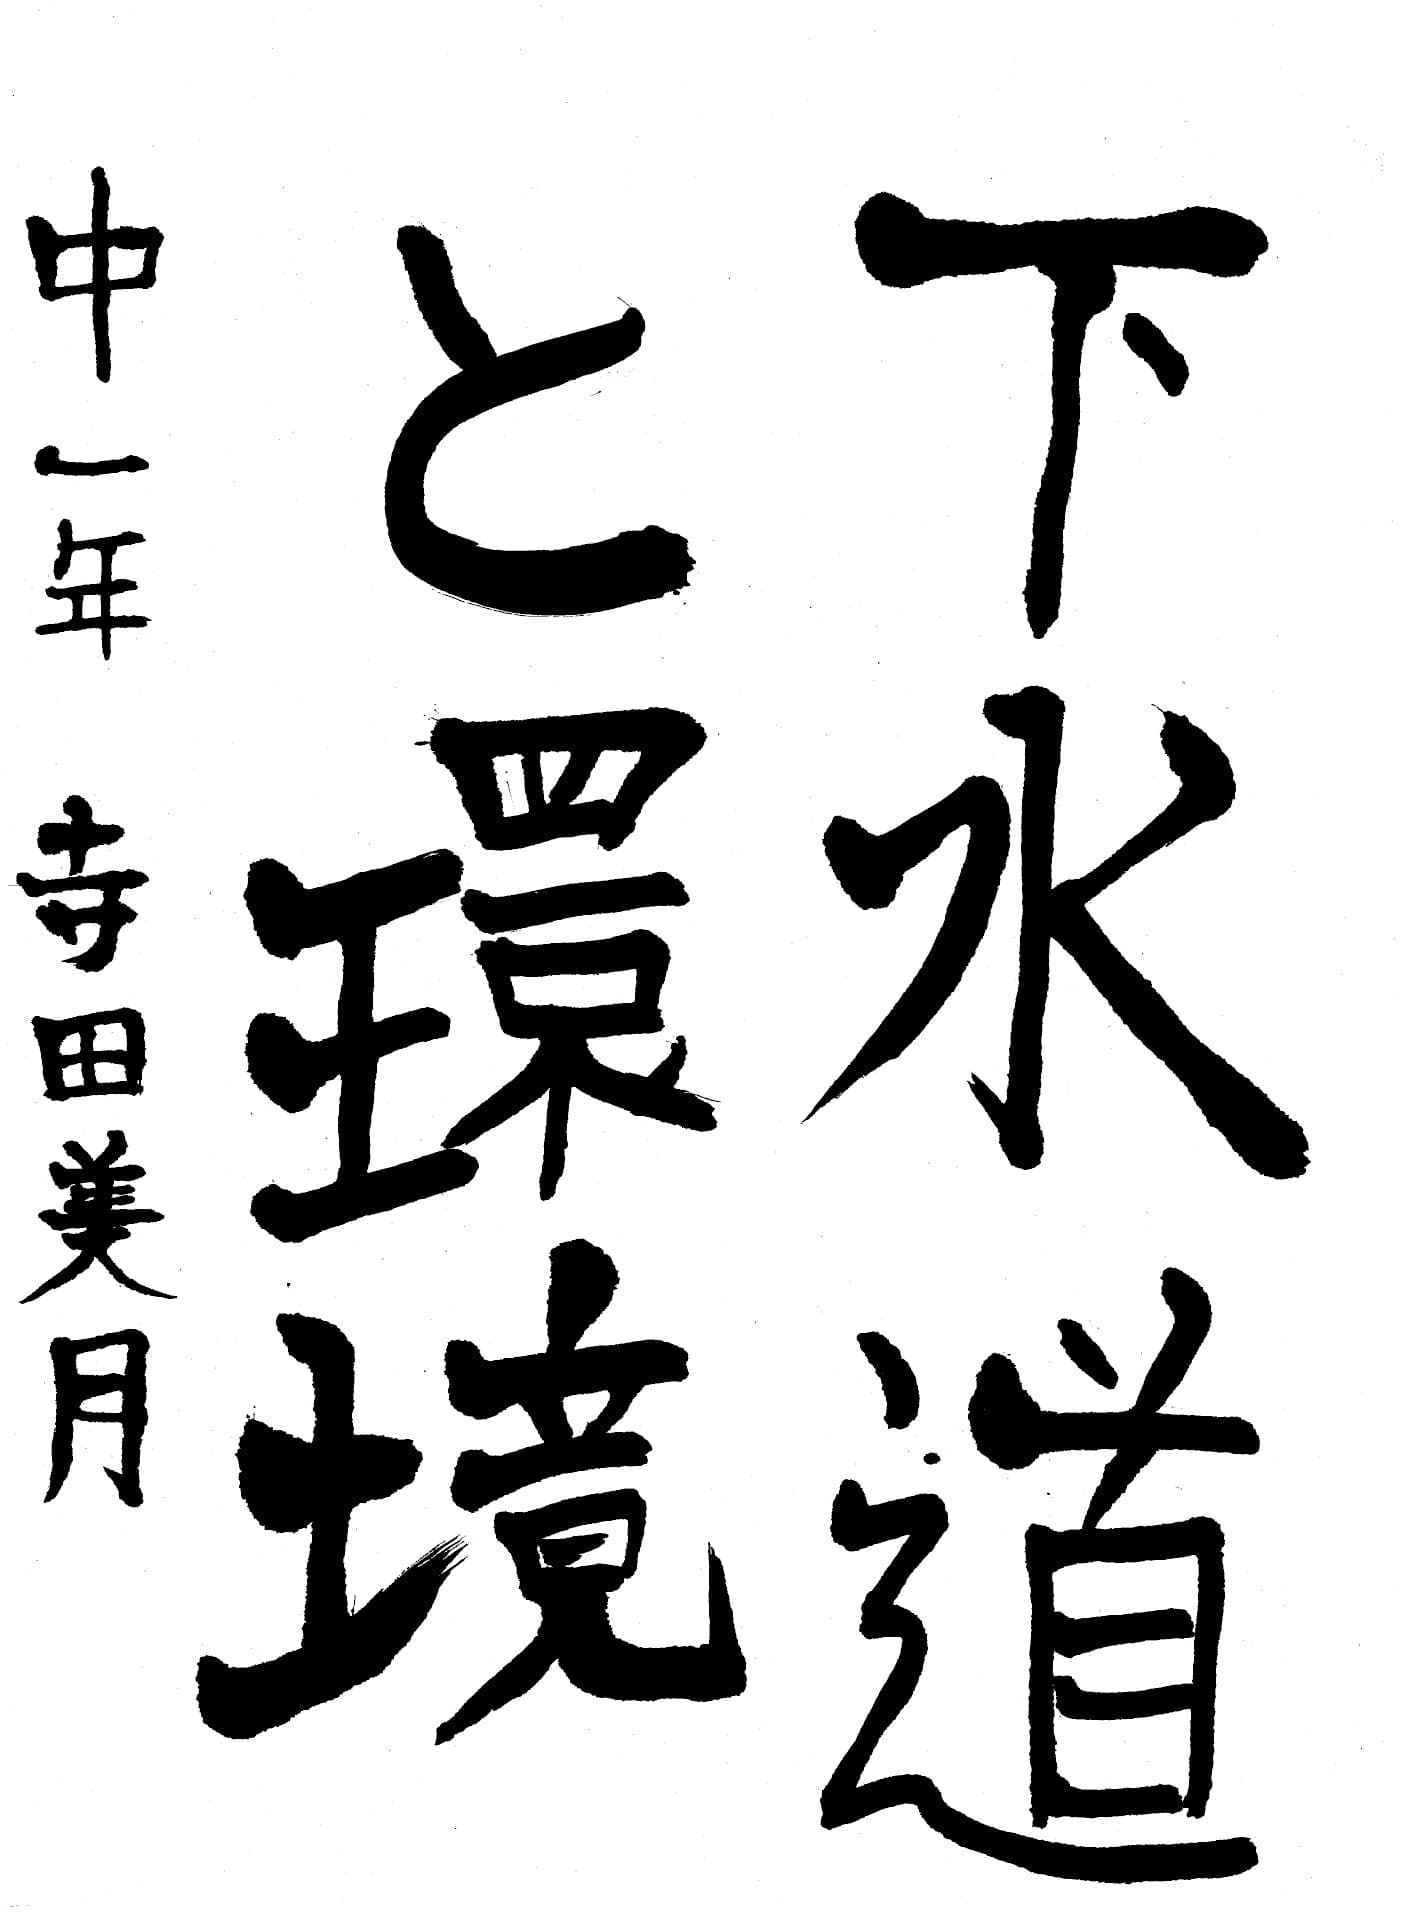 下水道
と環境
中一年 寺田美月